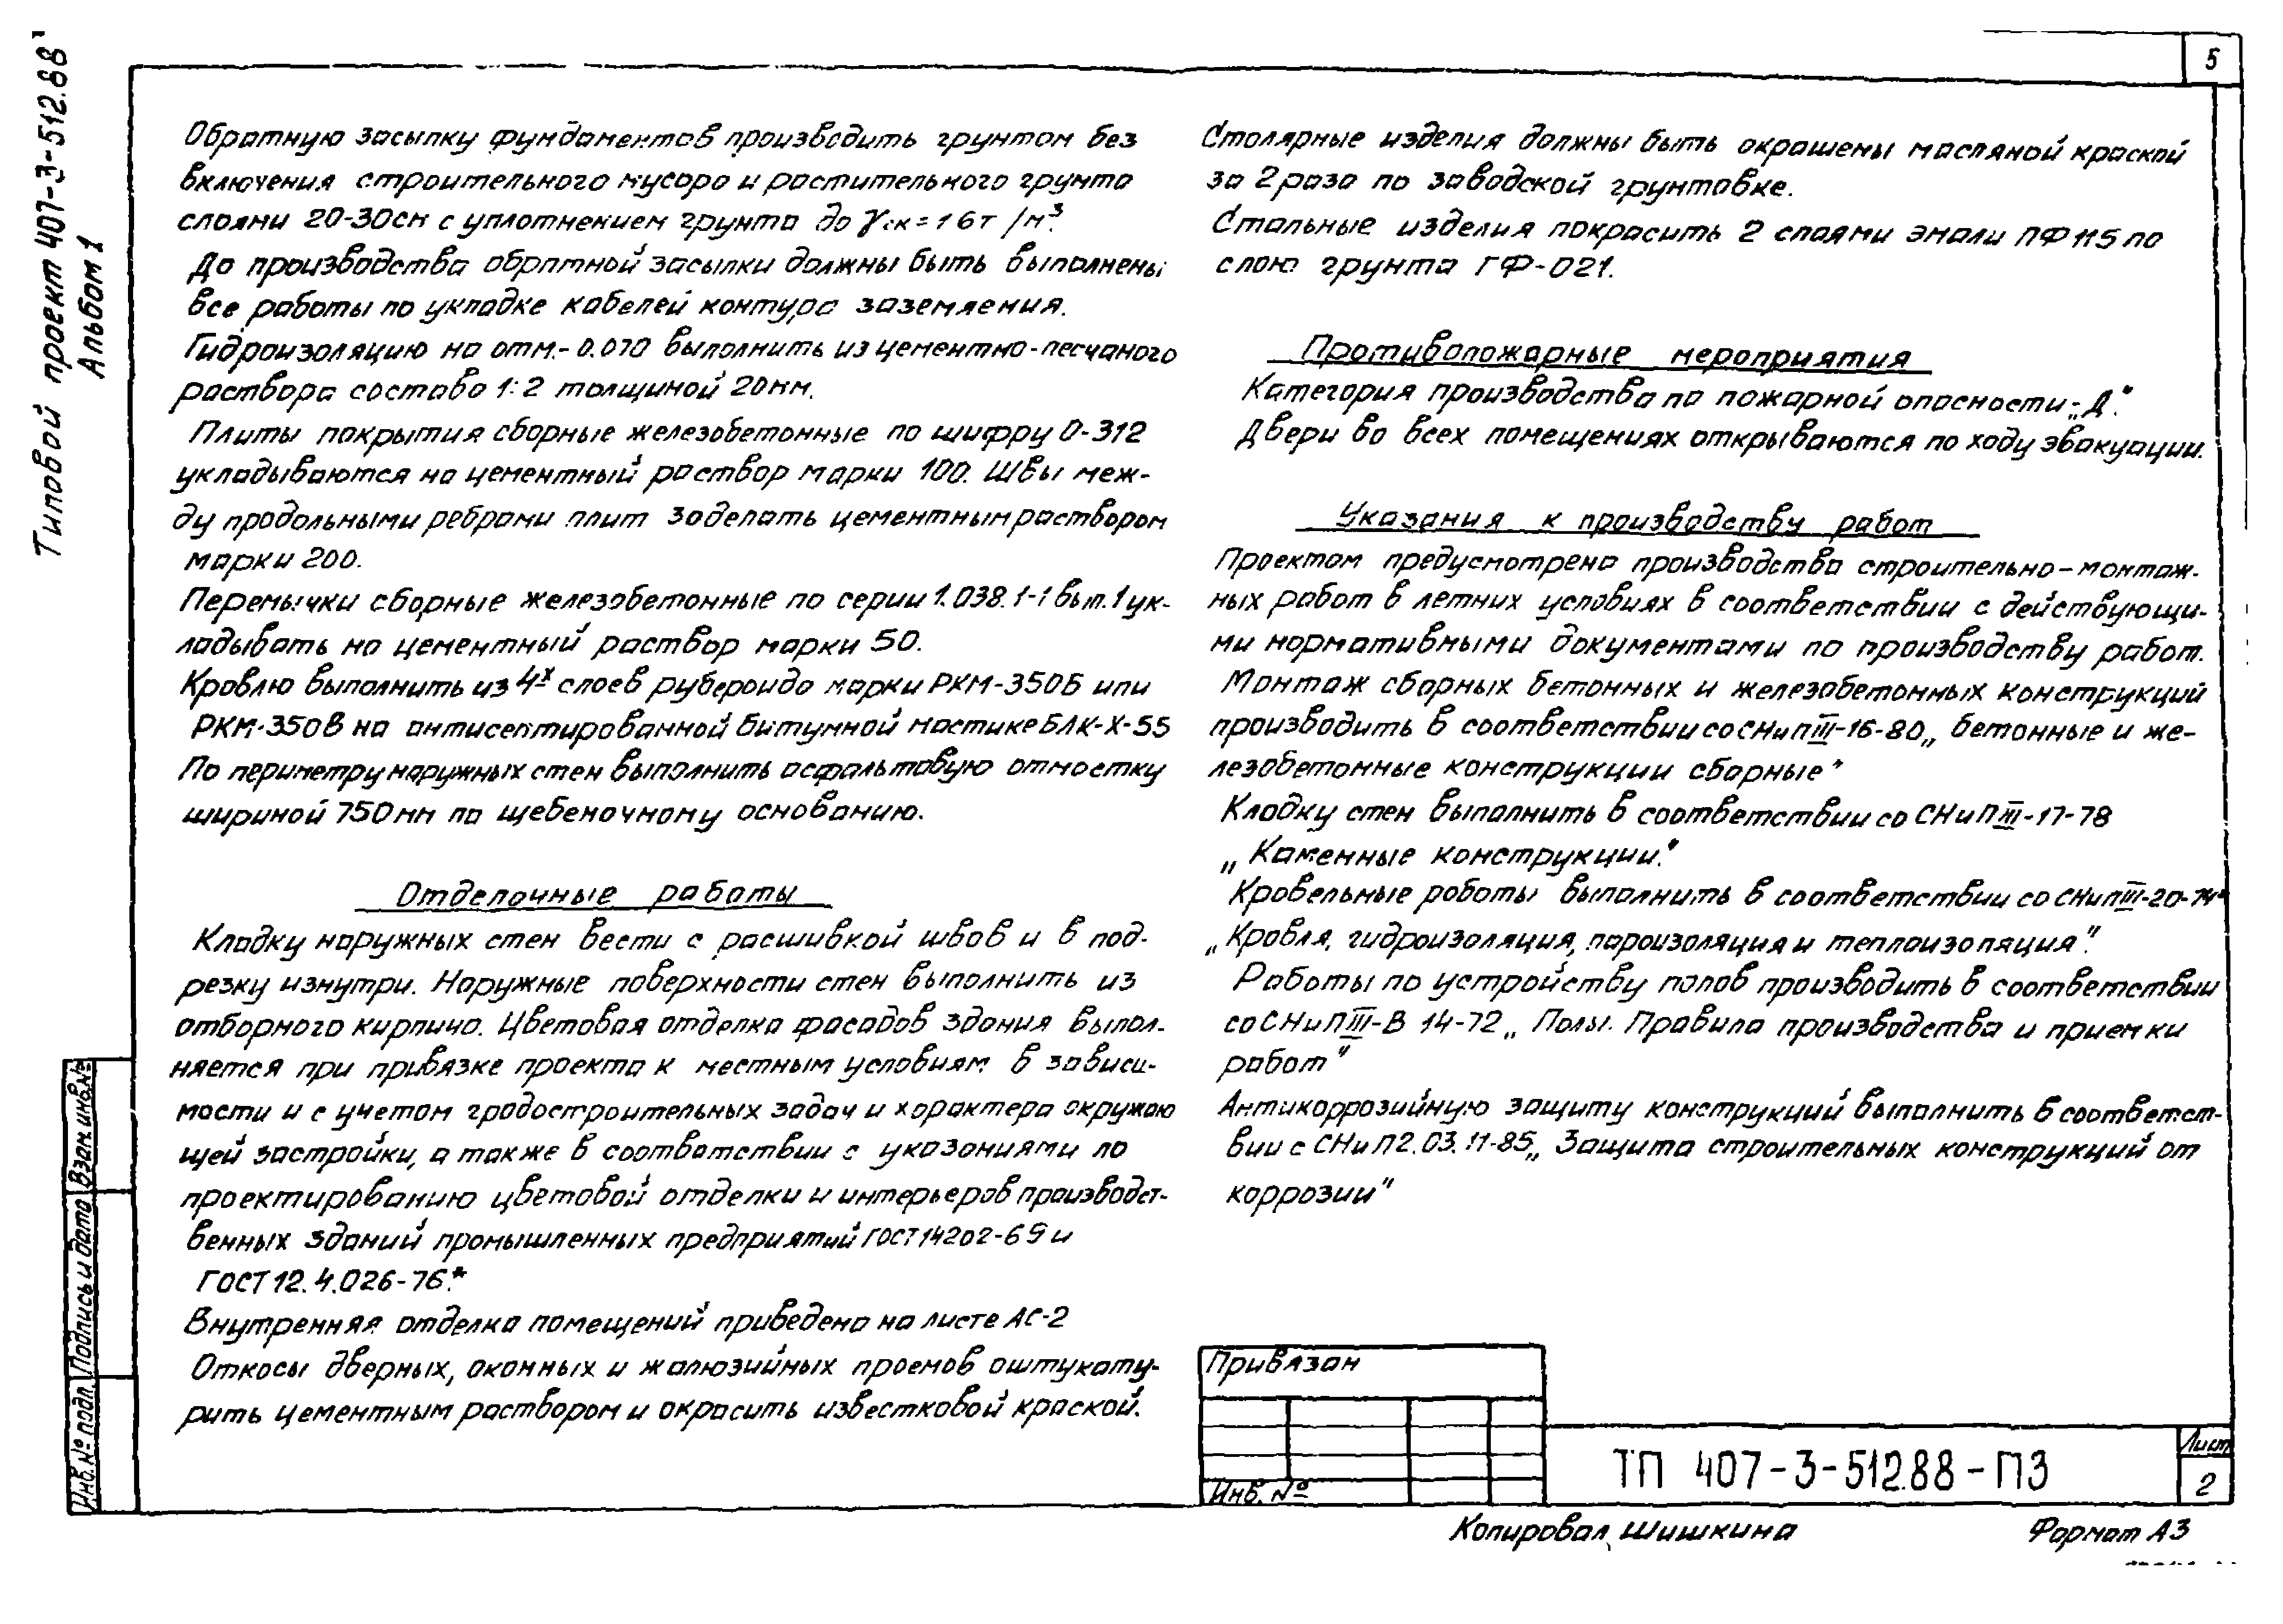 Типовой проект 407-3-512.88
Альбом 1
5
Обратную засыпку фундаментов производить грунтом без
включения строительного мусора и растительного грунта
слоями 20-30см с уплотнением грунта до γск = 1 6т /м³.
До производства обратной засыпки должны быть выполнены
все работы по укладке кабелей контура заземления.
Гидроизоляцию на отм.- 0.070 выполнить из цементно-песчаного
раствора состава 1:2 толщиной 20мм.
Плиты покрытия сборные железобетонные по шифру 0-312
укладываются на цементный раствор марки 100. Швы меж-
ду продольными ребрами плит заделать цементным раствором
марки 200.
Перемычки сборные железобетонные по серии 1.038.1-1 вып.1 ук-
ладывать на цементный раствор марки 50.
Кровлю выполнить из 4х слоев рубероида марки РКМ-350Б или
РКМ-350В на антисептированной битумной мастике БЛК-Х-55
По периметру наружных стен выполнить асфальтовую отмостку
шириной 750мм по щебеночному основанию.
Отделочные работы
Кладку наружных стен вести с расшивкой швов и в под-
резку изнутри. Наружные поверхности стен выполнить из
отборного кирпича. Цветовая отделка фасадов здания выпол-
няется при привязке проекта к местным условиям в зависи-
мости и с учетом градостроительных задач и характера окружаю
щей застройки, а также в соответствии с указаниями по
проектированию цветовой отделки и интерьеров производст-
венных зданий промышленных предприятий ГОСТ 14202-69 и
ГОСТ 12.4.026-76.*
Внутренняя отделка помещений приведена на листе АС-2
Откосы дверных, оконных и жалюзийных проемов оштукату-
рить цементным раствором и окрасить известковой краской.
Столярные изделия должны быть окрашены масляной краской
за 2 раза по заводской грунтовке.
Стальные изделия покрасить 2 слоями эмали ПФ 115 по
слою грунта ГФ-021.
Противопожарные мероприятия
Категория производства по пожарной опасности-„Д."
Двери во всех помещениях открываются по ходу эвакуации.
Указания к производству работ
Проектом предусмотрено производство строительно-монтаж-
ных работ в летних условиях в соответствии с действующи-
ми нормативными документами по производству работ.
Монтаж сборных бетонных и железобетонных конструкций
производить в соответствии со СНиП III-16-80„ бетонные и же-
лезобетонные конструкции сборные"
Кладку стен выполнить в соответствии со СНиП III-17-78
„Каменные конструкции."
Кровельные работы выполнить в соответствии со СНиП III-20-74*
„Кровля, гидроизоляция, пароизоляция и теплоизоляция".
Работы по устройству полов производить в соответствии
со СНиП III-В 14-72„ Полы. Правила производства и приемки
работ"
Антикоррозийную защиту конструкций выполнить в соответст-
вии с СНиП 2.03.11-85„ Защита строительных конструкций от
коррозии"
Взам.инв.№
Подпись и дата
Инв.№ подл.
Привязан
Инв. №
ТП 407-3-512.88-ПЗ
Лист
2
Копировал Шишкина
Формат А3